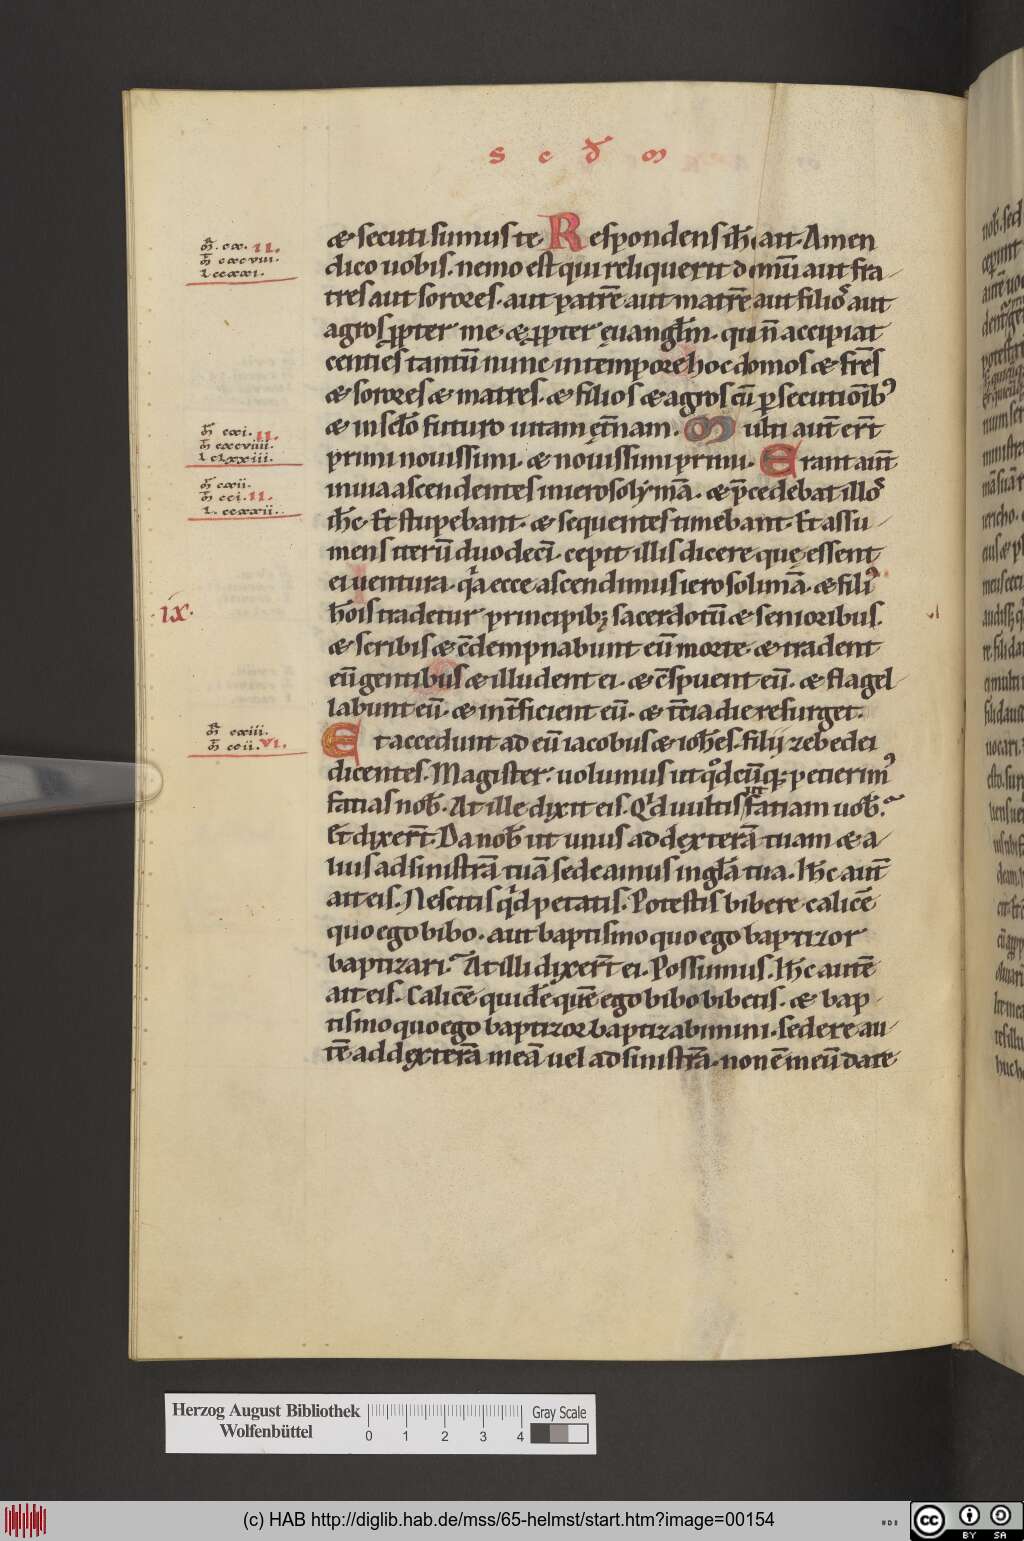 s c d̄ m
& secuti sumus te. Respondens ih̅c ait. Amen
dico uobis. nemo est qui reliquerit domū aut fra-
tres aut sorores. aut patrē aut matrē aut filios aut
agros ꝓpter me. & ꝓpter euangl̄m. qui n̄ accipiat
centies tantū nunc in tempore hoc domos & fr̄es
& sorores & matres. & filios & agros cū ꝑsecutionib᷒
& in sc̄lo futuro uitam et̄nam. Multi aut̄ er̄t
primi nouissimi. & nouissimi primi. Erant aut̄
in uia ascendentes in ierosolymā. & p̄cedebat illos
ih̅c. Et stupebant. & sequentes timebant. Et assu-
mens iterū duodecī. cepit illis dicere quę essent
ei uentura. qa ecce ascendimus ierosolimā. & fili᷒
ho̅is tradetur principib; sacerdotū & senioribus.
& scribis & cōdempnabunt eū morte. & tradent
eū gentibus & illudent ei. & cōspuent eū. & flagel-
labunt eū. & int̄ficient eū. & t̄cia die resurget.
Et accedunt ad eū iacobus & ioh̅es. filij zebedei
dicentes. Magister. uolumus ut qd̄cūq; petierim᷒
facias nob̄. At ille dixit eis. Qid uultis ut faciam uob̄.
Et dixer̄t. Da nob̄ ut unus ad dexterā tuam & a-
lius ad sinistrā tuā sedeamus in gl̄a tua. Ih̅c aut̄
ait eis. Nescitis qid petatis. Potestis bibere calicē
quo ego bibo. aut baptismo quo ego baptizor
baptizari. At illi dixer̄t ei. Possumus. Ih̅c autē
ait eis. Calicē quidē quē ego bibo bibetis. & bap-
tismo quo ego baptizor baptizabimini. sedere au-
tē ad dexterā meā uel ad sinistrā. non ē meū dare
m̄. cx. II.
m̄ cxcviii.
l ccxxi.
m̄ cxi. II.
m̄ cxcviiii.
l clxxiii.
m̄ cxii.
m̄ cci. II.
l. ccxxii.
ix.
m̄ cxiii.
m̄ ccii. VI.
Herzog August Bibliothek
Wolfenbüttel
0 1 2 3 4
Gray Scale
(c) HAB http://diglib.hab.de/mss/65-helmst/start.htm?image=00154
cc BY SA